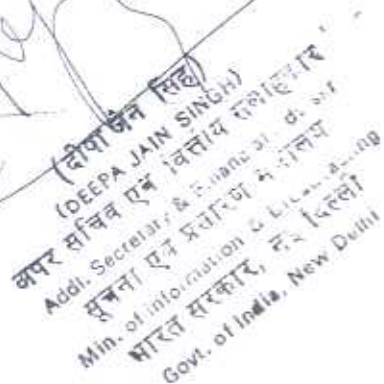 (दीपा जैन सिंह)
(DEEPA JAIN SINGH)
अपर सचिव एवं वित्तीय सलाहकार
Addl. Secretary & Financial
सूचना एवं प्रसारण मंत्रालय
Min. of Information & Broadcasting
भारत सरकार, नई दिल्ली
Govt. of India, New Delhi